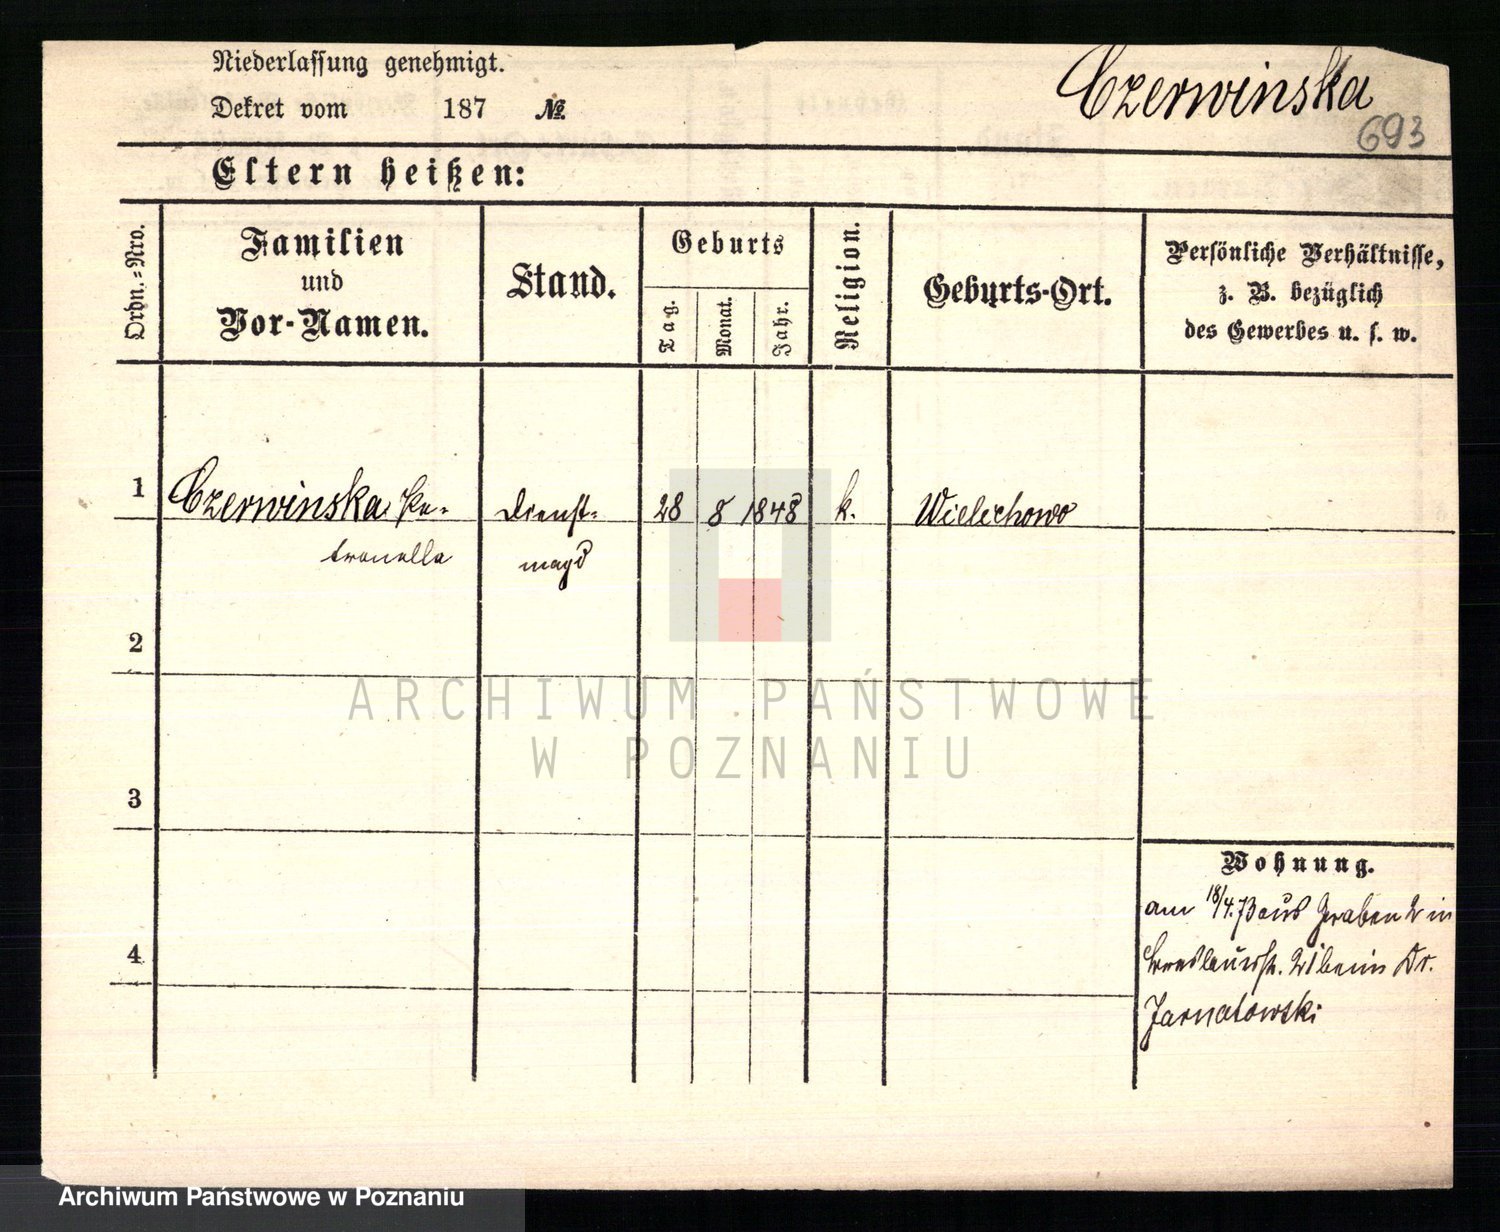 Niederlassung genehmigt.
Czerwinska
Dekret vom 187 №
693
Eltern heißen:
Ordn.=Nro.
Familien
und
Vor-Namen.
Stand.
Geburts
Tag.
Monat.
Jahr.
Religion.
Geburts-Ort.
Persönliche Verhältnisse,
z. B. bezüglich
des Gewerbes u. s. w.
1 Czerwinska Pe= Dienst= 28 8 1848 k. Wielichowo
tronella magd
2
ARCHIWUM PAŃSTWOWE
W POZNANIU
3
Wohnung.
am 18/4.73 aus Graben 2 in
4
Breslauerstr. 21 beim Dr.
Jarnatowski
Archiwum Państwowe w Poznaniu